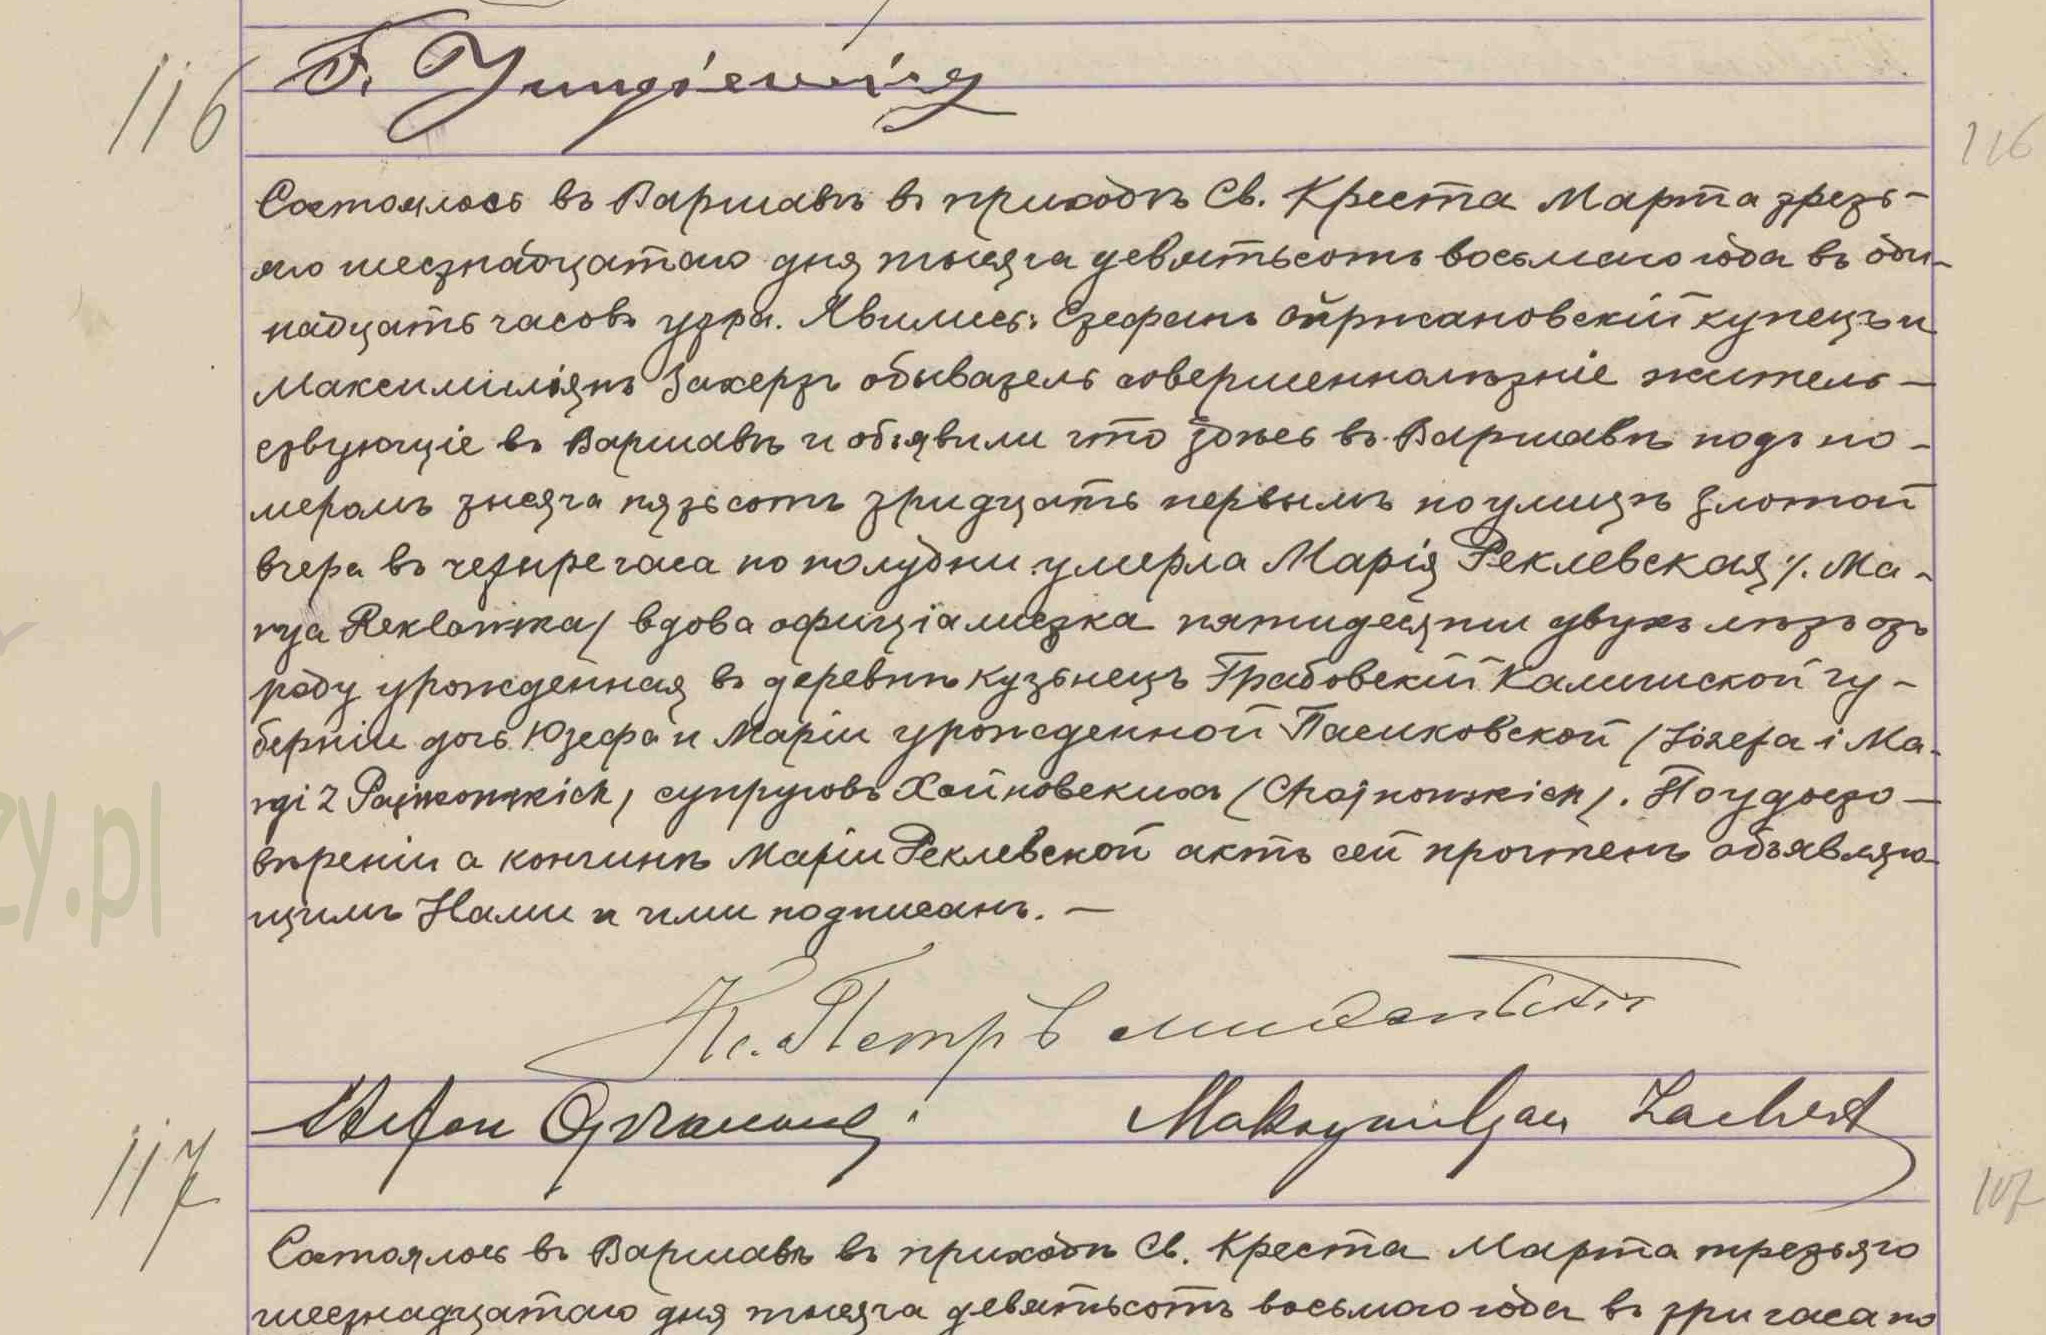 F. Jungiewicz
116
116
Состоялось въ Варшавѣ въ приходѣ Св. Креста Марта треть-
яго шестнадцатаго дня тысяча девятьсотъ восьмого года въ оди-
надцать часовъ утра. Явились: Стефанъ Ойржановскій купецъ и
Максимиліянъ Захертъ обыватель совершеннолѣтніе житель-
ствующіе въ Варшавѣ и объявили что здѣсь въ Варшавѣ подъ но-
меромъ тысяча пятьсотъ тридцать первымъ по улицѣ Злотой
вчера въ четыре часа по полудни умерла Марія Реклевская /. Ma-
rya Reklewska/ вдова оффиціалистка пятидесяти двухъ лѣтъ отъ
роду урожденная въ деревнѣ Кузьнецъ Грабовскій Калишской гу-
берніи дочь Юзефа и Маріи урожденной Пашковской /Józefa i Ma-
ryi z Paszkowskich/ супруговъ Хойновскихъ /Chojnowskich/. По удосто-
вѣреніи а кончинѣ Маріи Реклевской актъ сей прочтенъ объявляю-
щимъ Нами и ими подписанъ. —
Кс. Петръ
Stefan Ojrzanowski Maksymiljan Zachert
117
117
Состоялось въ Варшавѣ въ приходѣ Св. Креста Марта третьяго
шестнадцатаго дня тысяча девятьсотъ восьмого года въ три часа по
zy.pl